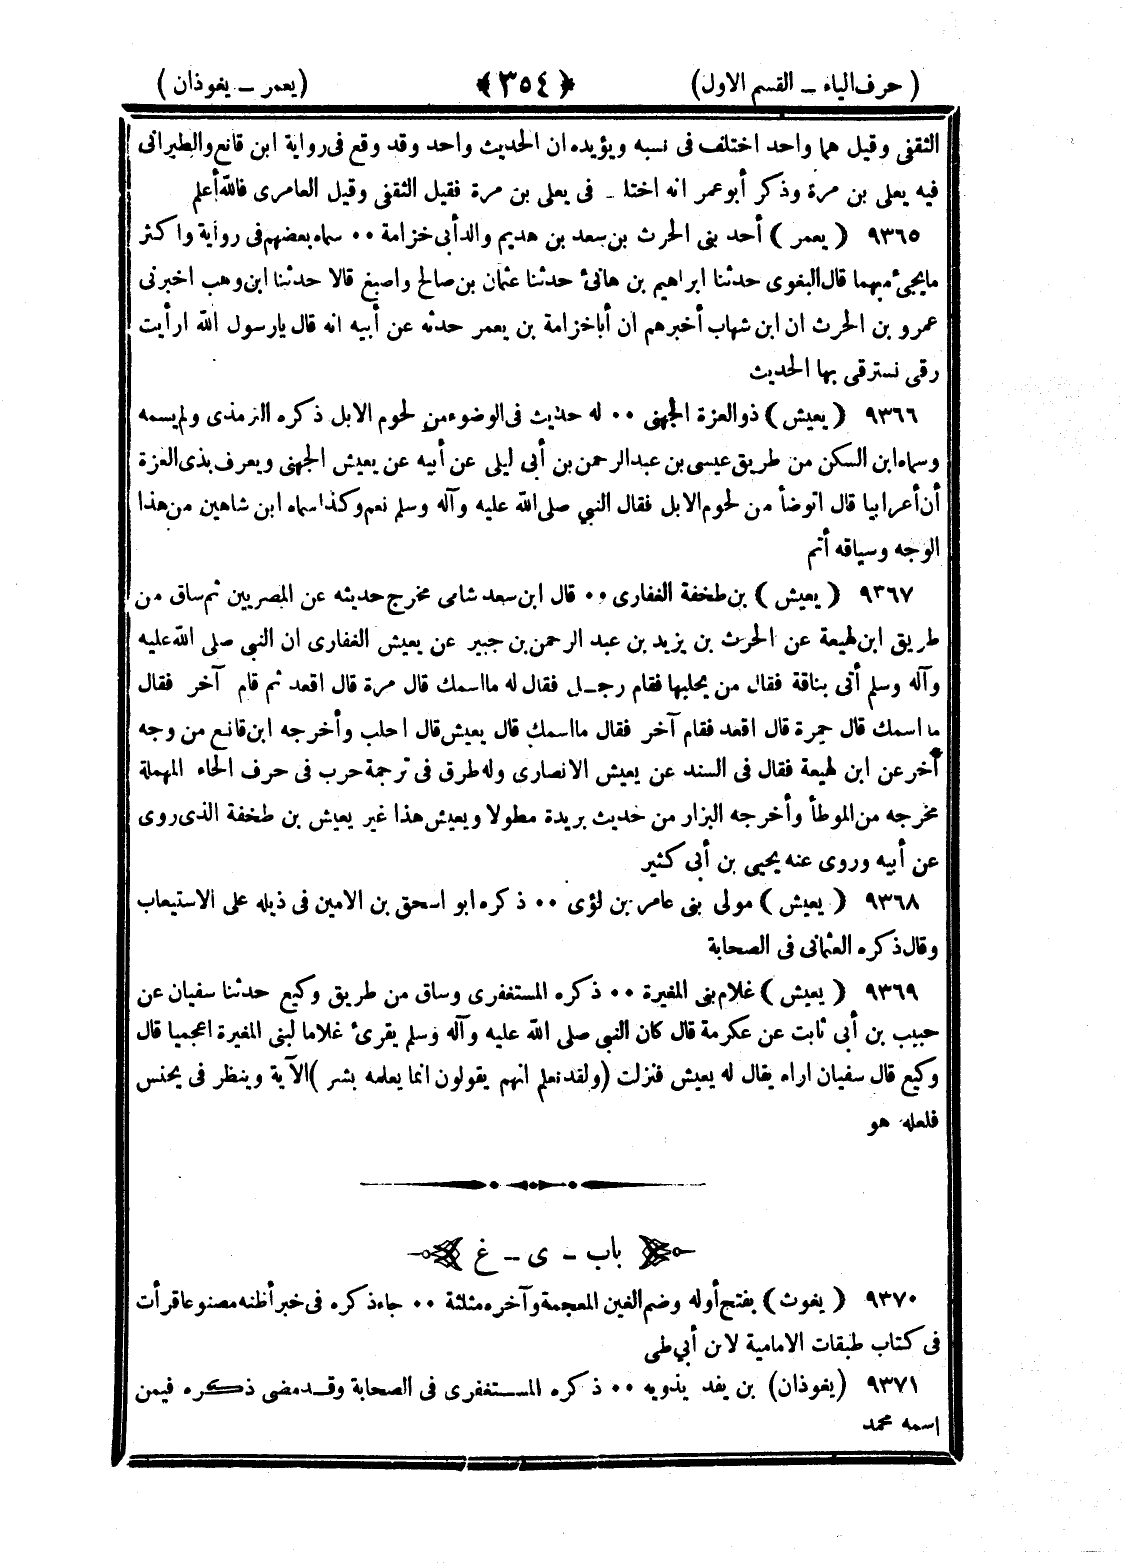 ( حرف الياء ـ القسم الاول) ﴿ ٣٥٤ ﴾ (يعمر ـ يغوذان )
الثقفى وقيل هما واحد اختلف فى نسبه ويؤيده ان الحديث واحد وقد وقع فى رواية ابن قانع والطبرانى
فيه يعلى بن مرة وذكر أبو عمر انه اختلـ ـ فى يعلى بن مرة فقيل الثقفى وقيل العامرى فالله أعلم
٩٣٦٥ ( يعمر ) أحد بنى الحرث بن سعد بن هديم والد أبى خزامة ٠٠ سماه بعضهم فى رواية واكثر
مايجئ مبهما قال البغوى حدثنا ابراهيم بن هانئ حدثنا عثمان بن صالح واصبغ قالا حدثنا ابن وهب اخبرنى
عمرو بن الحرث ان ابن شهاب أخبرهم ان أباخزامة بن يعمر حدثه عن أبيه انه قال يارسول الله ارأيت
رقى نسترقى بها الحديث
٩٣٦٦ ( يعيش ) ذوالعزة الجهنى ٠٠ له حديث فى الوضوء من لحوم الابل ذكره الترمذى ولم يسمه
وسماه ابن السكن من طريق عيسى بن عبدالرحمن بن أبى ليلى عن أبيه عن يعيش الجهنى ويعرف بذى العزة
أن أعرابيا قال اتوضأ من لحوم الابل فقال النبي صلى الله عليه وآله وسلم نعم وكذا سماه ابن شاهين من هذا
الوجه وسياقه أتم
٩٣٦٧ ( يعيش ) بن طخفة الغفارى ٠٠ قال ابن سعد شامى مخرج حديثه عن المصريين ثم ساق من
طريق ابن لهيعة عن الحرث بن يزيد بن عبد الرحمن بن جبير عن يعيش الغفارى ان النبي صلى الله عليه
وآله وسلم أتى بناقة فقال من يحلبها فقام رجـل فقال له مااسمك قال مرة قال اقعد ثم قام آخر فقال
ما اسمك قال جمرة قال اقعد فقام آخر فقال مااسمك قال يعيش قال احلب وأخرجه ابن قانع من وجه
آخر عن ابن لهيعة فقال فى السند عن يعيش الانصارى وله طرق فى ترجمة حرب فى حرف الحاء المهملة
مخرجه من الموطأ وأخرجه البزار من حديث بريدة مطولا ويعيش هذا غير يعيش بن طخفة الذى روى
عن أبيه وروى عنه يحيى بن أبى كثير
٩٣٦٨ ( يعيش ) مولى بنى عامر بن لؤى ٠٠ ذكره ابو اسحق بن الامين فى ذيله على الاستيعاب
وقال ذكره العثمانى فى الصحابة
٩٣٦٩ ( يعيش ) غلام بنى المغيرة ٠٠ ذكره المستغفرى وساق من طريق وكيع حدثنا سفيان عن
حبيب بن أبى ثابت عن عكرمة قال كان النبي صلى الله عليه وآله وسلم يقرئ غلاما لبنى المغيرة اعجميا قال
وكيع قال سفيان اراه يقال له يعيش فنزلت (ولقد نعلم انهم يقولون انما يعلمه بشر )الآية وينظر فى يحنس
فلعله هو
باب ـ ى ـ غ
٩٣٧٠ ( يغوث ) بفتح أوله وضم الغين المعجمة وآخره مثلثة ٠٠ جاء ذكره فى خبر أظنه مصنوعا قرأت
فى كتاب طبقات الامامية لابن أبي طى
٩٣٧١ (يغوذان) بن يفد يذويه ٠٠ ذكره المستغفرى فى الصحابة وقد مضى ذكره فيمن
اسمه محمد